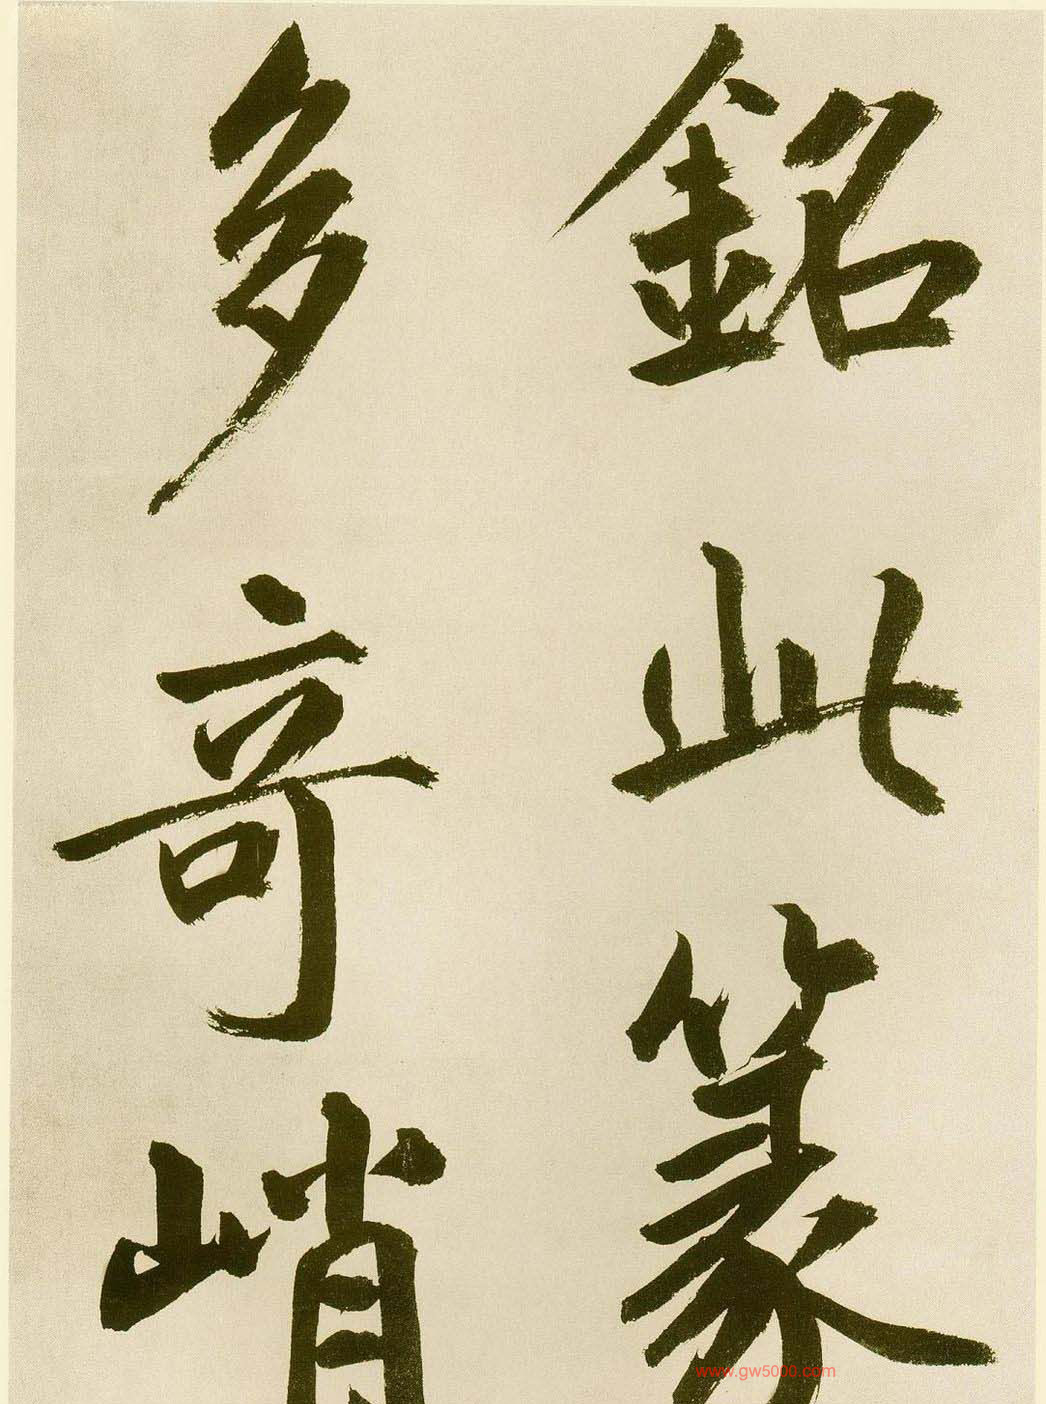 銘此篆
多奇峭
www.gw5000.com